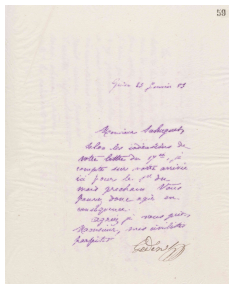 59
23 Janvier 83
Monsieur
Selon les indications de
votre lettre du
compte sur votre arrivée
ici pour le 1er du
mois prochain. Vous
pouvez donc agir en
conséquence.
Agréez je vous prie,
Monsieur, mes civilités
parfaites